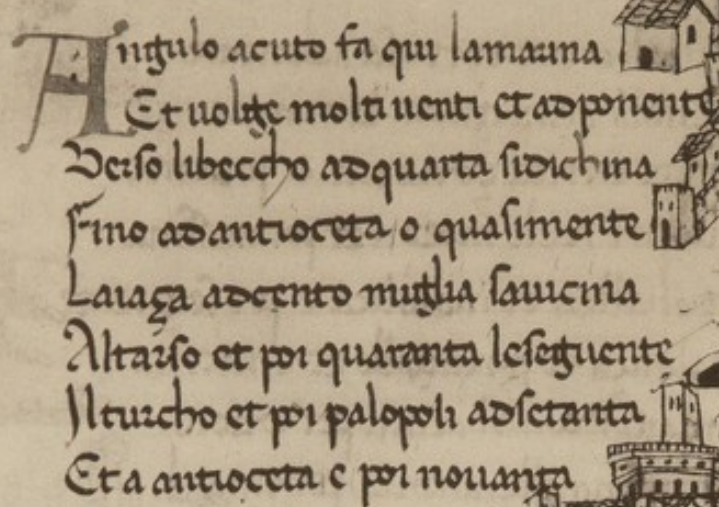 Angulo acuto fa qui lamarina
Et uolge molti uenti et adponente
Verso libeccho adquarta sidichina
Fino adantioceta o quasimente
Laiaça adcento miglia sauicina
Altarso et poi quaranta leseguente
Ilturcho et poi palopoli adsetanta
Et a antioceta e poi nouanta